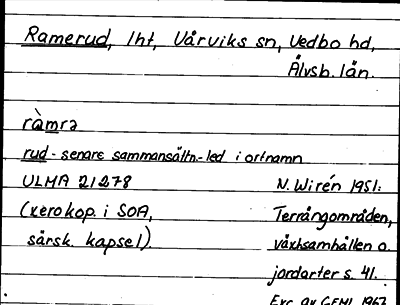 Ramerud, lht, Vårviks sn, Vedbo hd,
Älvsb. län.
ràmrə
rud - senare sammansättn.-led i ortnamn
ULMA 21278 N. Wirén 1951:
(xerokop. i SOA, Terrängområden,
särsk. kapsel) växtsamhällen o.
jordarter s. 41.
Exc. av GEML 1967